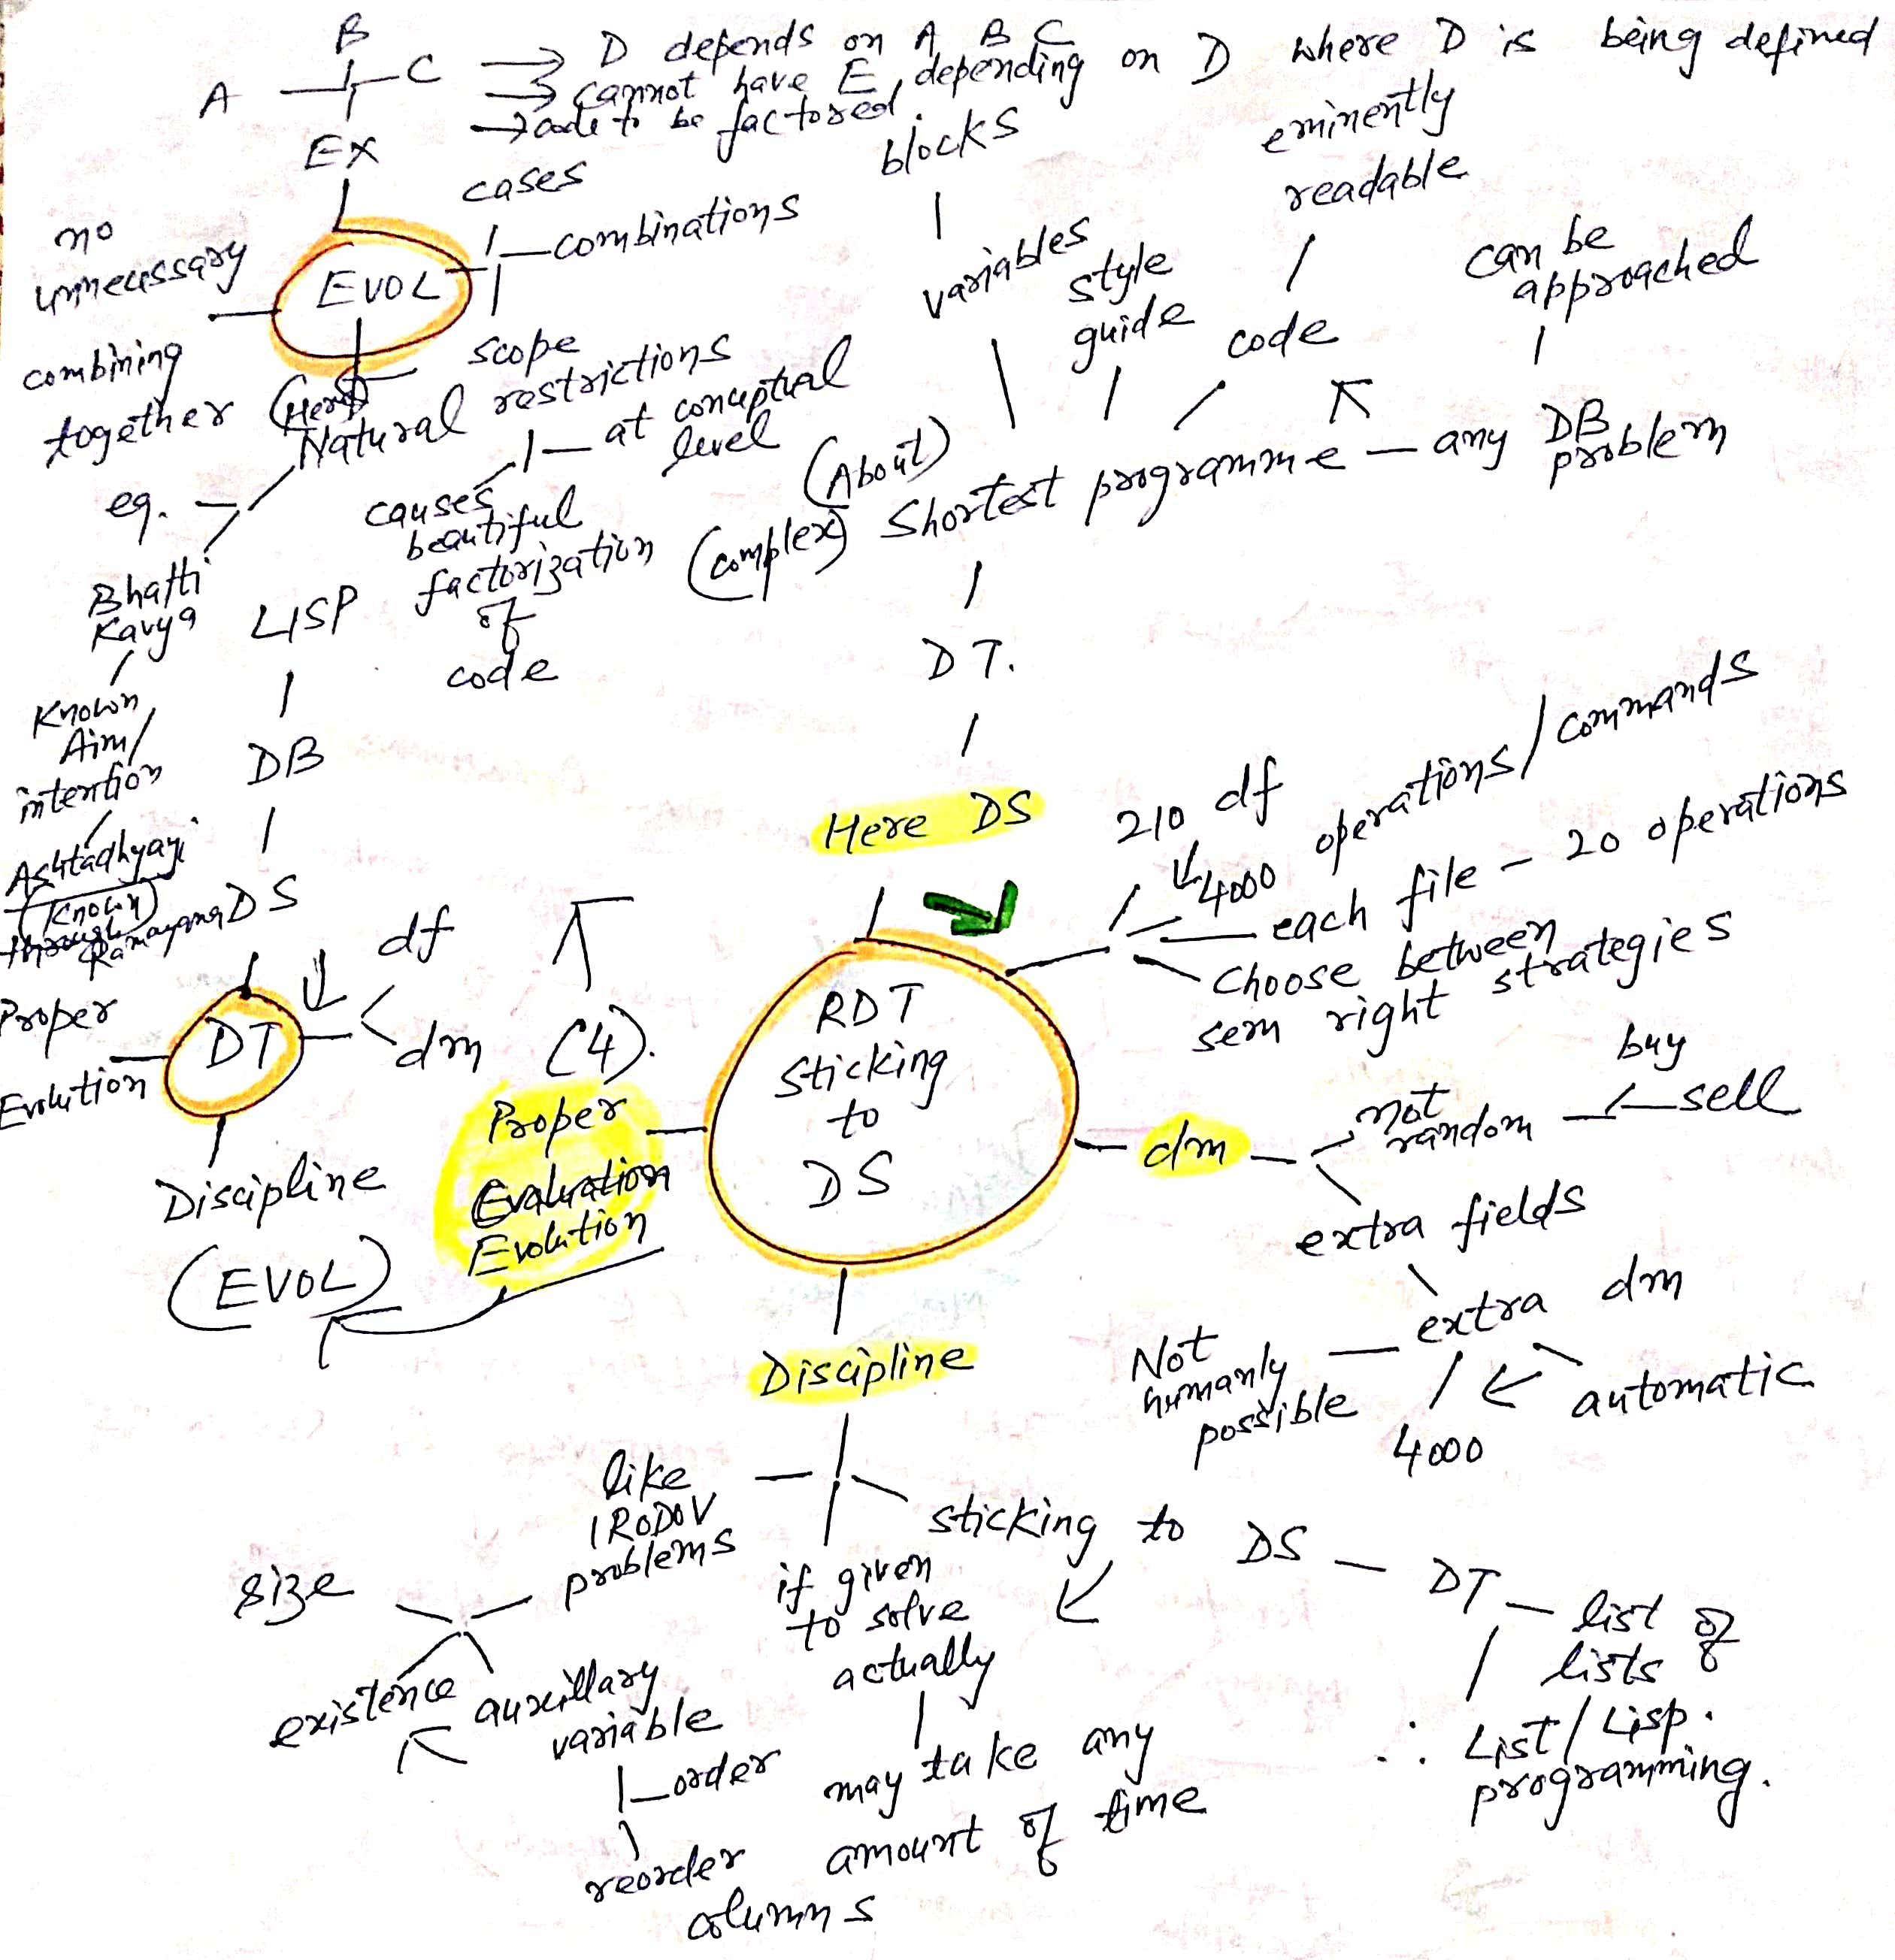 B
A
C
D depends on A B C
cannot have E, depending on D where D is being defined
code to be factored.
EX
cases
combinations
EVOL
no
unnecessary
combining
together
(Here)
scope
Natural restrictions
at conceptual
level
causes
beautiful
factorization
of
code
eg.
Bhatti
Kavya
Known
Aim/
intention
Ashtadhyayi
(Known)
through
Ramayana
LISP
DB
DS
DT
df
dm
(4).
Proper
Evolution
Discipline
(EVOL)
blocks
variables
style
guide
eminently
readable
code
can be
approached
(About)
(complex) Shortest programme – any DB
problem
DT.
Here DS
RDT
sticking
to
DS
210 df
4000 operations/commands
each file – 20 operations
choose between
sem right strategies
dm
not
random
buy
sell
extra fields
extra dm
Not
humanly
possible
4000
automatic
Proper
Evaluation
Evolution
Discipline
like
IRODOV
problems
size
existence
auxillary
variable
order
reorder
columns
if given
to solve
actually
may take any
amount of time
sticking to DS – DT – list of
lists
∴ List/Lisp.
programming.